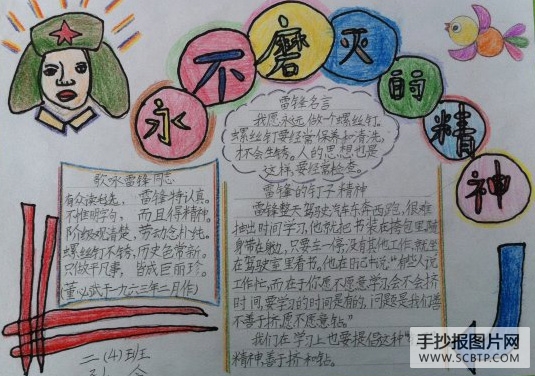 永不磨灭的精神
雷锋名言
我愿永远做个螺丝钉。
螺丝钉要经常保养和清洗,
才不会生锈。人的思想也是
这样,要经常检查。
歌咏雷锋同志
有众读毛选, 雷锋特认真。
不惟明字句, 而且得精神。
阶级观清楚, 劳动念朴纯。
螺丝钉不锈, 历史色常新。
只做平凡事, 皆成巨丽珍。
(董必武于一九六三年二月作)
雷锋的钉子精神
雷锋整天驾驶汽车东奔西跑,很难
抽出时间学习,他就把书装在挎包里随
身带在身边,只要车一停,没有其他工作,就坐
在驾驶室里看书。他在日记中说:"有些人说
工作忙,而在于你愿不愿意学习,会不会挤
时间,要学习的时间是有的,问题是我们善
不善于挤,愿不愿意钻。"
我们在学习上也要提倡这种
精神,善于挤和钻。
二(4)班
手抄报图片网
WWW.SCBTP.COM